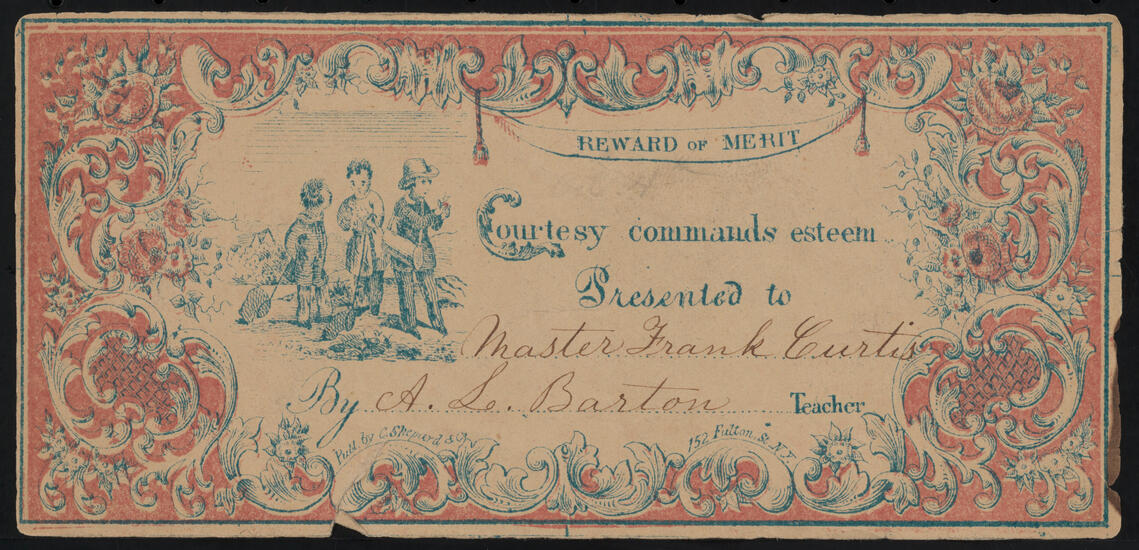 REWARD OF MERIT
Courtesy commands esteem
Presented to
Master Frank Curtis
By A. L. Barton Teacher
Publ. by C. Shepard & Co. 152 Fulton St. N.Y.